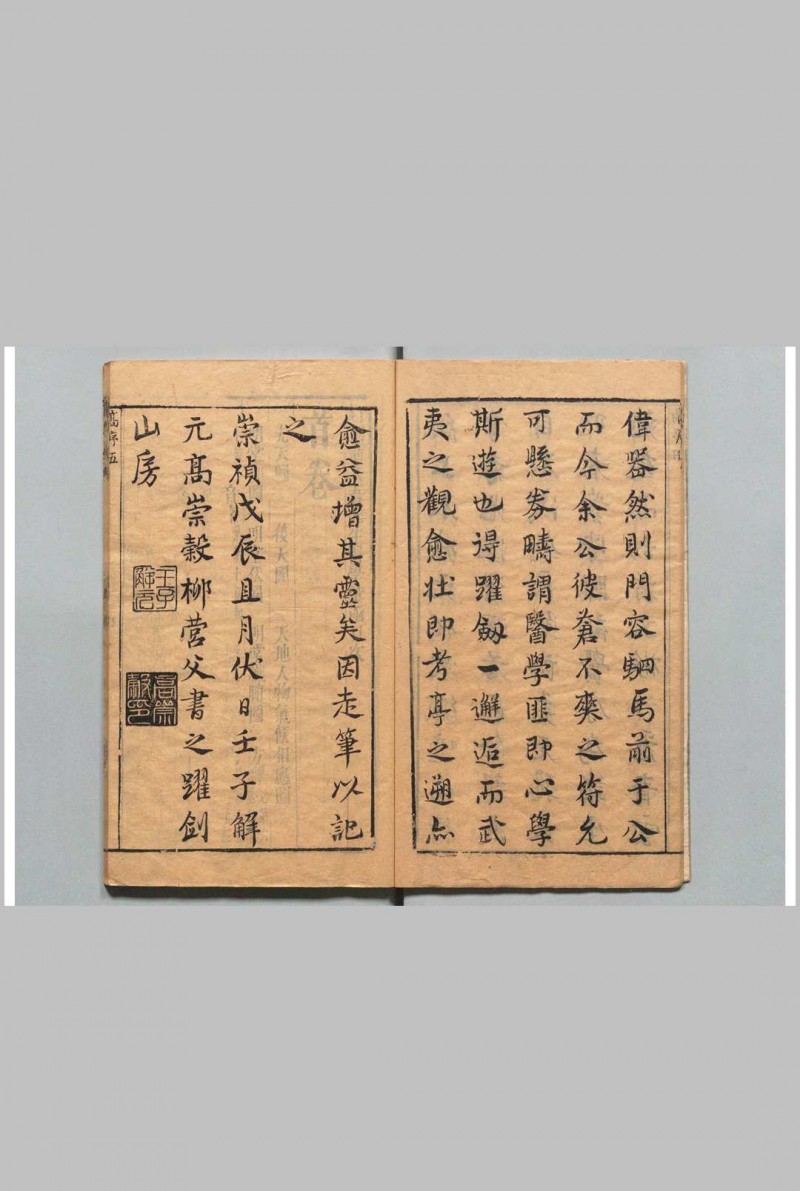 偉器然則門容駟馬前于公
而今余公彼蒼不爽之符允
可懸券疇謂醫學匪即心學
斯遊也得躍劔一邂逅而武
夷之觀愈壮即考亭之遡点
愈益增其靈矣因走筆以記
之
崇禎戊辰且月伏日壬子解
元高崇榖柳營父書之躍劍
山房
壬子解元
高崇榖印
高序五